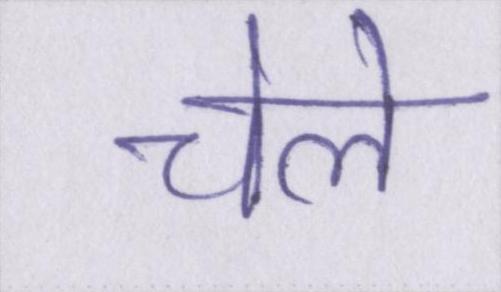 चेले